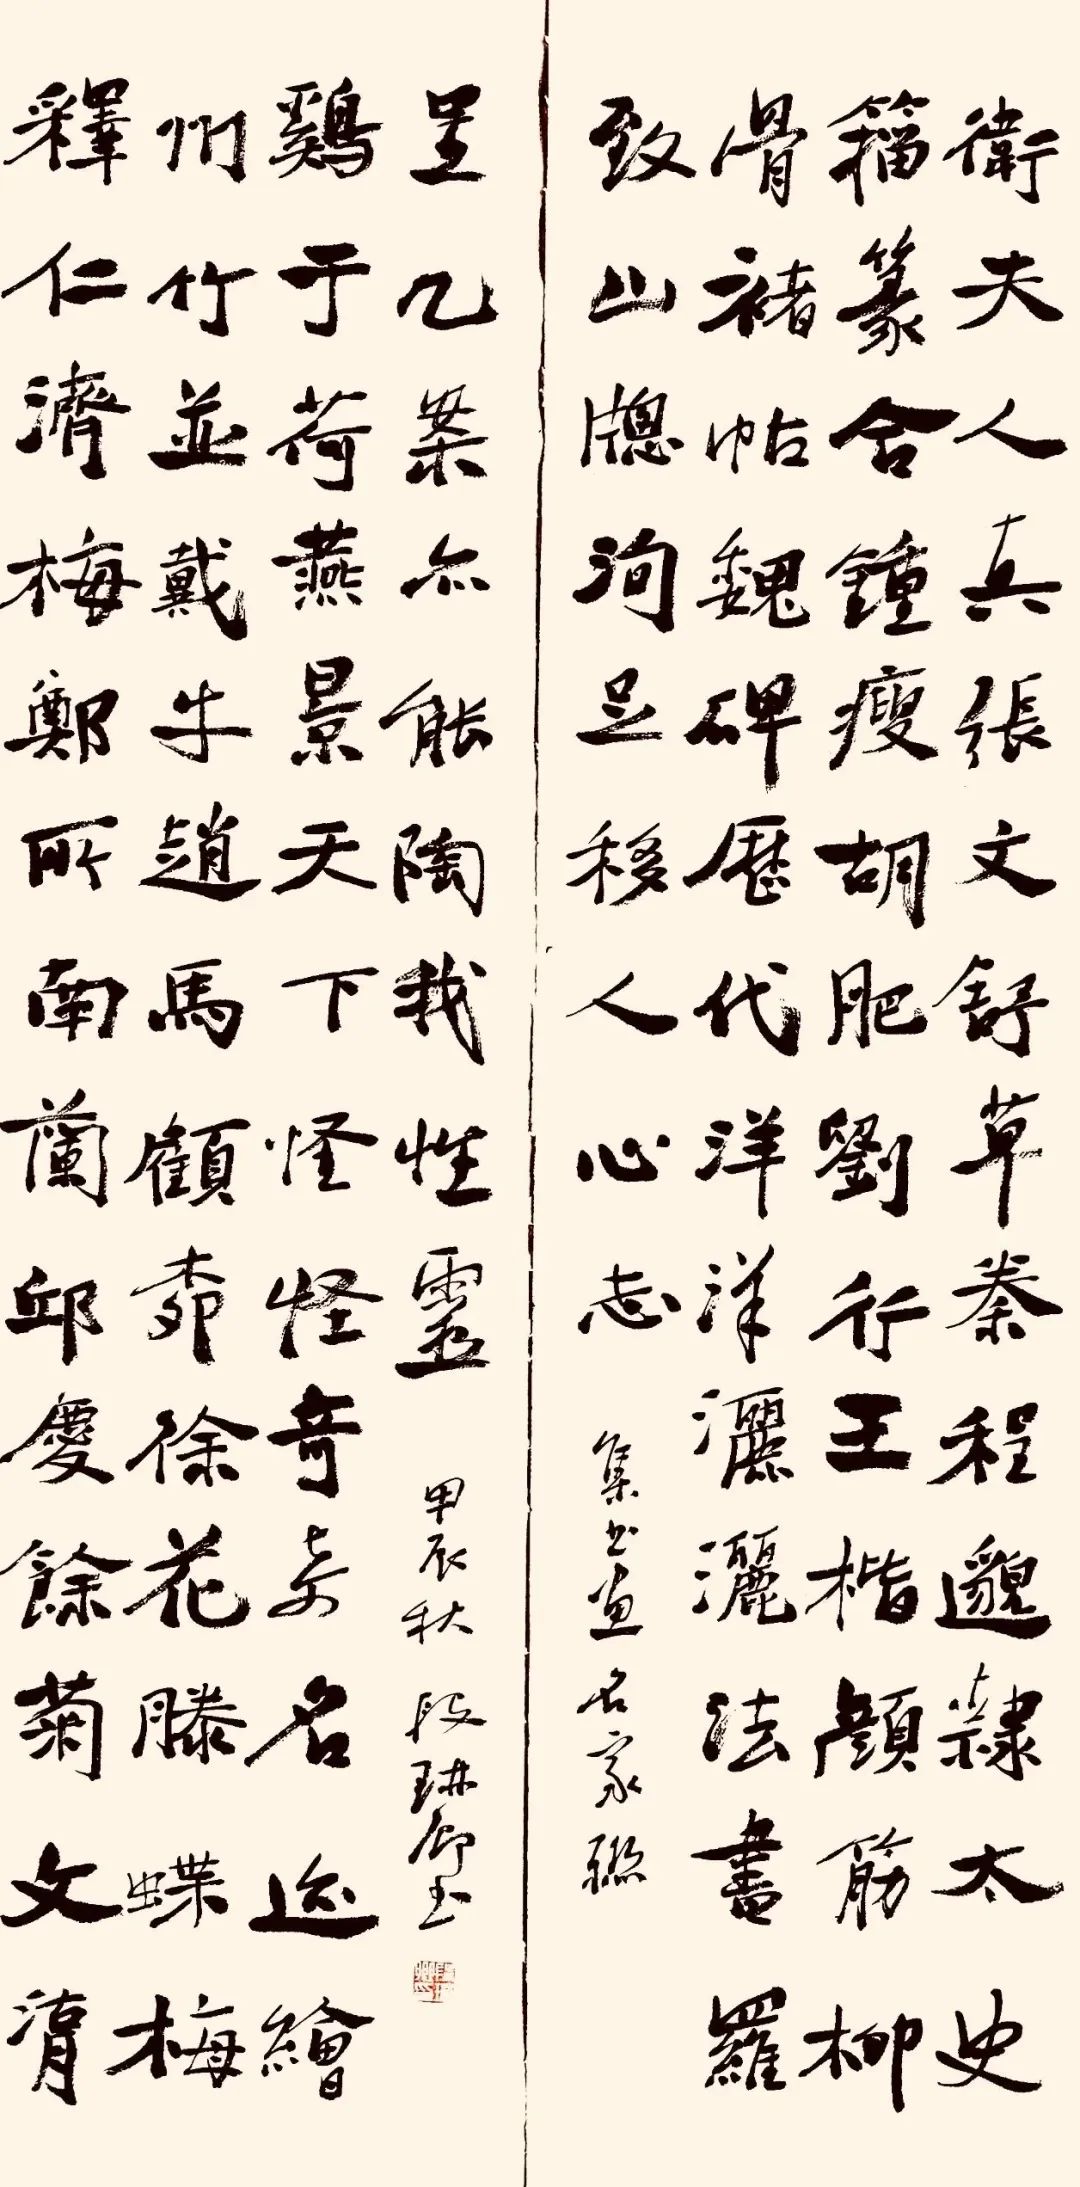 衛夫人真張文舒草秦程邈隸太史
籀篆合鍾瘦胡肥劉行王楷顏筋柳
骨褚帖魏碑歷代洋洋灑灑法書羅
致山牕洵足移人心志
集書畫名家聯
釋仁濟梅鄭所南蘭邱慶餘菊文湖
州竹並戴牛趙馬顧徐花滕蝶梅
鷄于荷燕景天下怪怪奇奇名迹繪
呈几案亦能陶我性靈
甲辰秋 段琳卿